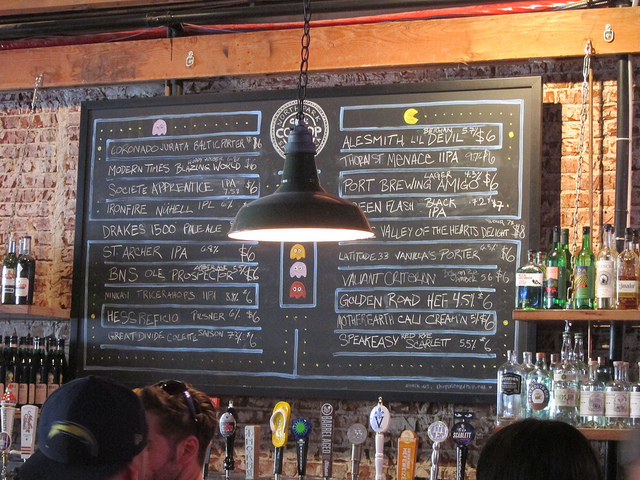 NORTH PARK
CO-OP
CORONADO JURATA BALTIC PORTER $6
MODERN TIMES BLAZING WORLD $6
SOCIETE APPRENTICE IPA 7.5% $6
IRONFIRE NUHELL IPL 6% $6
DRAKES 1500 PALE ALE
ST ARCHER IPA 6.9% $6
BNS OLE PROSPECTOR $6
TRICERAHOPS IIPA 8.8% $6
HESS REFICIO PILSNER 6% $6
GREAT DIVIDE COLETTE SAISON 7.3% $6
ALESMITH LIL DEVIL BELGIAN 5.7% $6
THORN ST MENACE IIPA
PORT BREWING AMIGO LAGER $6
GREEN FLASH BLACK IPA 7.2% $7
VALLEY OF THE HEARTS DELIGHT $8
LATITUDE 33 VANILLA'S PORTER $6
VALIANT CRITERION $6
GOLDEN ROAD HEF 4.5% $6
MOTHER EARTH CALI CREAMIN 5% $6
SPEAKEASY SCARLETT RED RYE 5.5% $6
SCARLETT